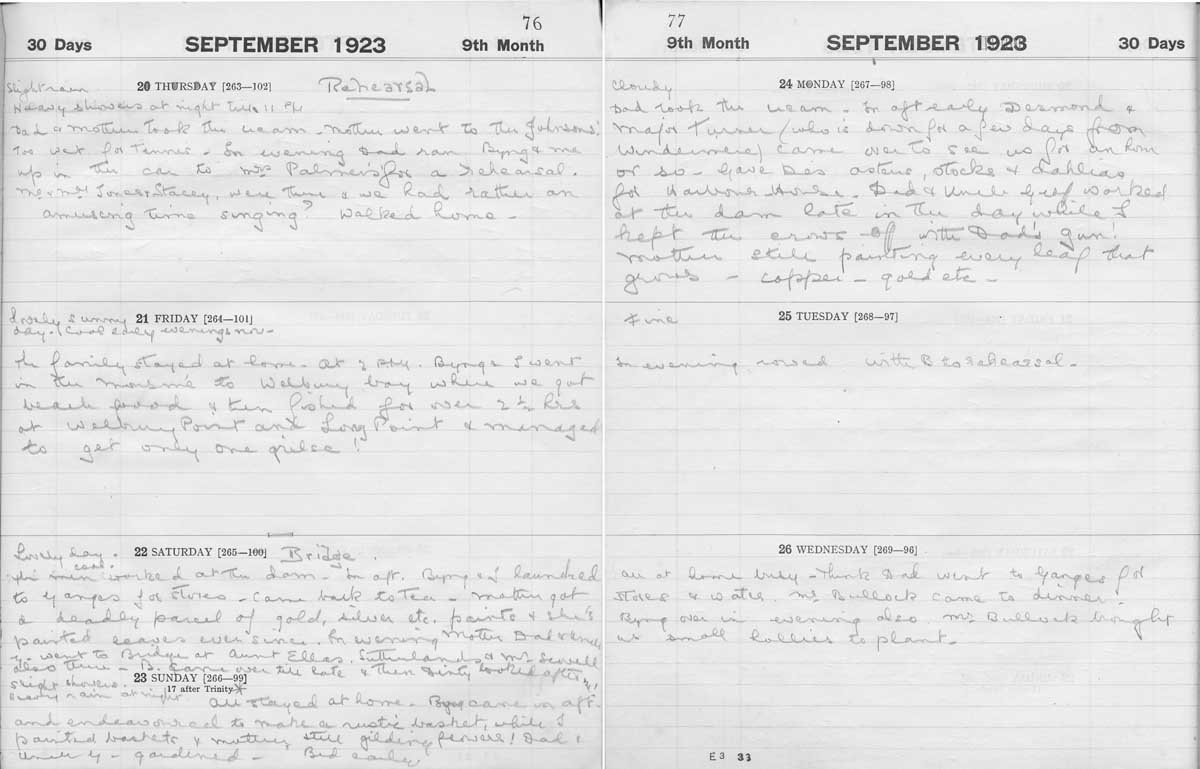 76
30 Days SEPTEMBER 1923 9th Month
20 THURSDAY [263—102] Rehearsal
Slight rain
Heavy showers at night till 11 PM
Dad & Mother took the team. Mother went to the Johnsons'
Too wet for tennis. In evening Dad ran Byng & me
up in the car to Mrs Palmer's for a rehearsal.
Mr & Mrs Jones & Stacey, were there & we had rather an
amusing time singing? Walked home -
21 FRIDAY [264—101]
Lovely sunny
day. Cool early evenings now -
The family stayed at home. At 2 PM. Byng & I went
in the to Welbury bay where we got
beach wood & then fished for over 2½ hrs
at Welbury Point and Long Point & managed
to get only one grilse!
22 SATURDAY [265—100] Bridge.
Lovely day.
cool.
The men worked at the dam - In aft. Byng & I launched
to Ganges for stores - Came back to tea - Mother got
a deadly parcel of gold, silver etc. paints & she's
painted leaves ever since. In evening Mother Dad &
& went to Bridge at Aunt Ellas. Sutherlands & Mr
also there - B. came over till late & then looked after me!
23 SUNDAY [266—99]
17 after Trinity
Slight showers.
Heavy rain at night
All stayed at home. Byng came in aft.
and endeavoured to make a rustic basket, while I
painted baskets & Mother still gilding flowers! Dad &
Uncle G - gardened - Bed early.
77
9th Month SEPTEMBER 1923 30 Days
24 MONDAY [267—98]
Cloudy
Dad took the team - In aft early Desmond &
Major Turner (who is down for a few days from
Windermere) came over to see us for an hour
or so - Gave Des asters, stocks & dahlias
for Harbour House. Dad & Uncle worked
at the dam late in the day while I
kept the crows off with Dad's gun!
Mother still painting every leaf that
grows - copper - gold etc -
25 TUESDAY [268—97]
Fine
In evening rowed with B to rehearsal -
26 WEDNESDAY [269—96]
All at home busy - think Dad went to Ganges for
stores & water. Mr Bullock came to dinner.
Byng over in evening also. Mr Bullock brought
us small hollies to plant.
E 3 33